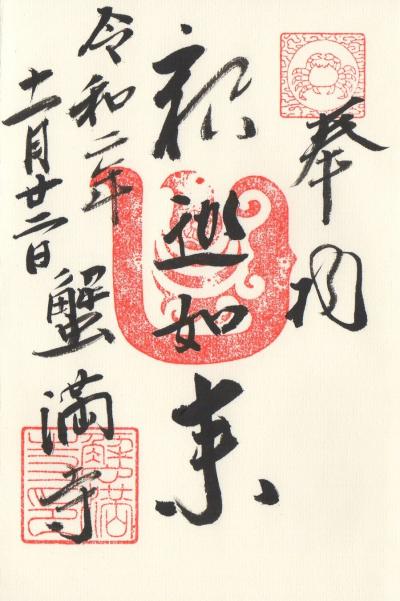 奉拝
釈迦如来
令和二年
十一月廿二日
蟹満寺